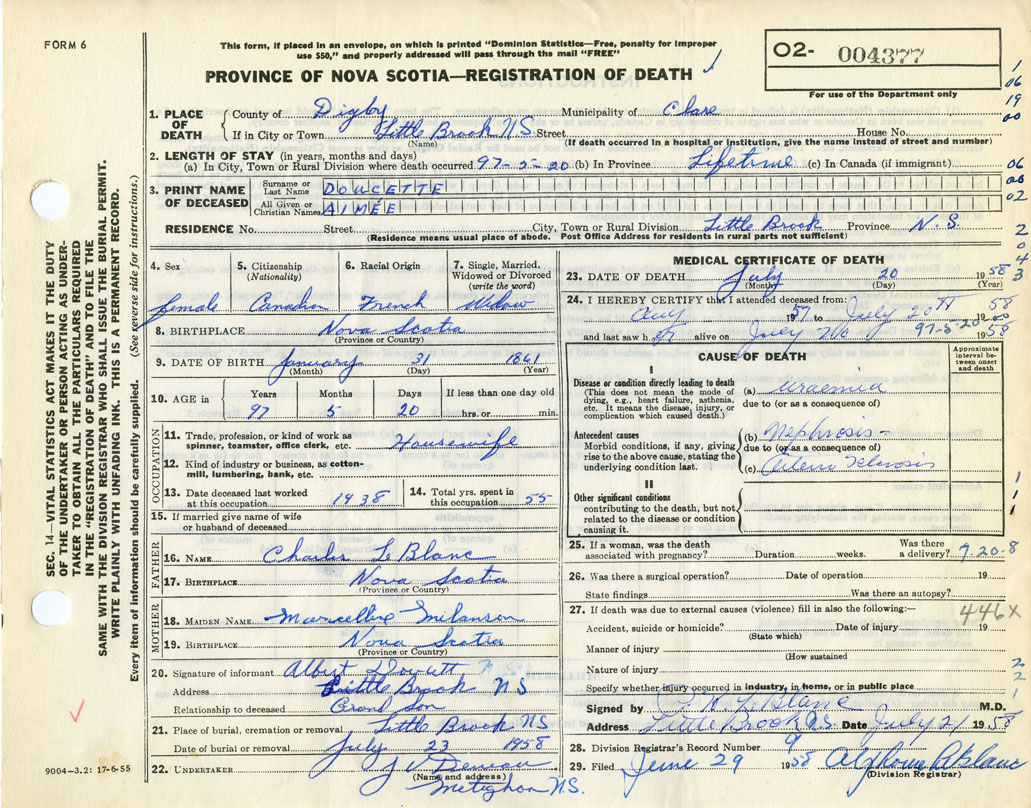 FORM 6
This form, if placed in an envelope, on which is printed "Dominion Statistics—Free, penalty for improper
use $50," and properly addressed will pass through the mail "FREE"
PROVINCE OF NOVA SCOTIA—REGISTRATION OF DEATH
O2- 004377
For use of the Department only
1. PLACE OF DEATH
County of Digby Municipality of Clare
If in City or Town Little Brook NS Street House No.
(Name) (If death occurred in a hospital or institution, give the name instead of street and number)
2. LENGTH OF STAY (in years, months and days)
(a) In City, Town or Rural Division where death occurred 97-5-20 (b) In Province Lifetime (c) In Canada (if immigrant)
3. PRINT NAME OF DECEASED
Surname or Last Name DOUCETTE
All Given or Christian Names AIMÉE
RESIDENCE No. Street City, Town or Rural Division Little Brook Province N.S.
(Residence means usual place of abode. Post Office Address for residents in rural parts not sufficient)
4. Sex 5. Citizenship (Nationality) 6. Racial Origin 7. Single, Married, Widowed or Divorced (write the word)
female Canadian French Widow
8. BIRTHPLACE Nova Scotia
(Province or Country)
9. DATE OF BIRTH January 31 1861
(Month) (Day) (Year)
10. AGE in Years Months Days If less than one day old
97 5 20 hrs. or min.
OCCUPATION
11. Trade, profession, or kind of work as spinner, teamster, office clerk, etc. Housewife
12. Kind of industry or business, as cotton-mill, lumbering, bank, etc.
13. Date deceased last worked at this occupation 1938 14. Total yrs. spent in this occupation 55
15. If married give name of wife or husband of deceased
FATHER
16. NAME Charles LeBlanc
17. BIRTHPLACE Nova Scotia
(Province or Country)
MOTHER
18. MAIDEN NAME Marcelline Melanson
19. BIRTHPLACE Nova Scotia
(Province or Country)
20. Signature of informant Albert N.S.
Address Little Brook NS
Relationship to deceased Grand son
21. Place of burial, cremation or removal Little Brook NS
Date of burial or removal July 23 1958
22. UNDERTAKER J V Deveau
(Name and address)
Meteghan N.S.
MEDICAL CERTIFICATE OF DEATH
23. DATE OF DEATH July 20 1958
(Month) (Day) (Year)
24. I HEREBY CERTIFY that I attended deceased from:
Aug 1957 to July 20th 58
and last saw h er alive on July 20 1958
97-5-20
CAUSE OF DEATH
Approximate interval between onset and death
I
Disease or condition directly leading to death
(This does not mean the mode of dying, e.g., heart failure, asthenia, etc. It means the disease, injury, or complication which caused death.)
(a) Uraemia
due to (or as a consequence of)
Antecedent causes
Morbid conditions, if any, giving rise to the above cause, stating the underlying condition last.
(b) Nephrosis -
due to (or as a consequence of)
(c) Sclerosis
II
Other significant conditions
contributing to the death, but not related to the disease or condition causing it.
25. If a woman, was the death associated with pregnancy? Duration weeks. Was there a delivery? 9-20-8
26. Was there a surgical operation? Date of operation 19
State findings Was there an autopsy?
27. If death was due to external causes (violence) fill in also the following:— 446X
Accident, suicide or homicide? Date of injury 19
(State which)
Manner of injury
(How sustained
Nature of injury
Specify whether injury occurred in industry, in home, or in public place
Signed by LeBlanc M.D.
Address Little Brook N.S. Date July 21 1958
28. Division Registrar's Record Number 9
29. Filed June 29 1958
(Division Registrar)
SEC. 14—VITAL STATISTICS ACT MAKES IT THE DUTY
OF THE UNDERTAKER OR PERSON ACTING AS UNDER-
TAKER TO OBTAIN ALL THE PARTICULARS REQUIRED
IN THE "REGISTRATION OF DEATH" AND TO FILE THE
SAME WITH THE DIVISION REGISTRAR WHO SHALL ISSUE THE BURIAL PERMIT.
WRITE PLAINLY WITH UNFADING INK. THIS IS A PERMANENT RECORD.
Every item of information should be carefully supplied. (See reverse side for instructions.)
9004—3.2: 17-6-55
1
06
19
00
06
00
02
2
0
4
3
1
1
1
2
2
1